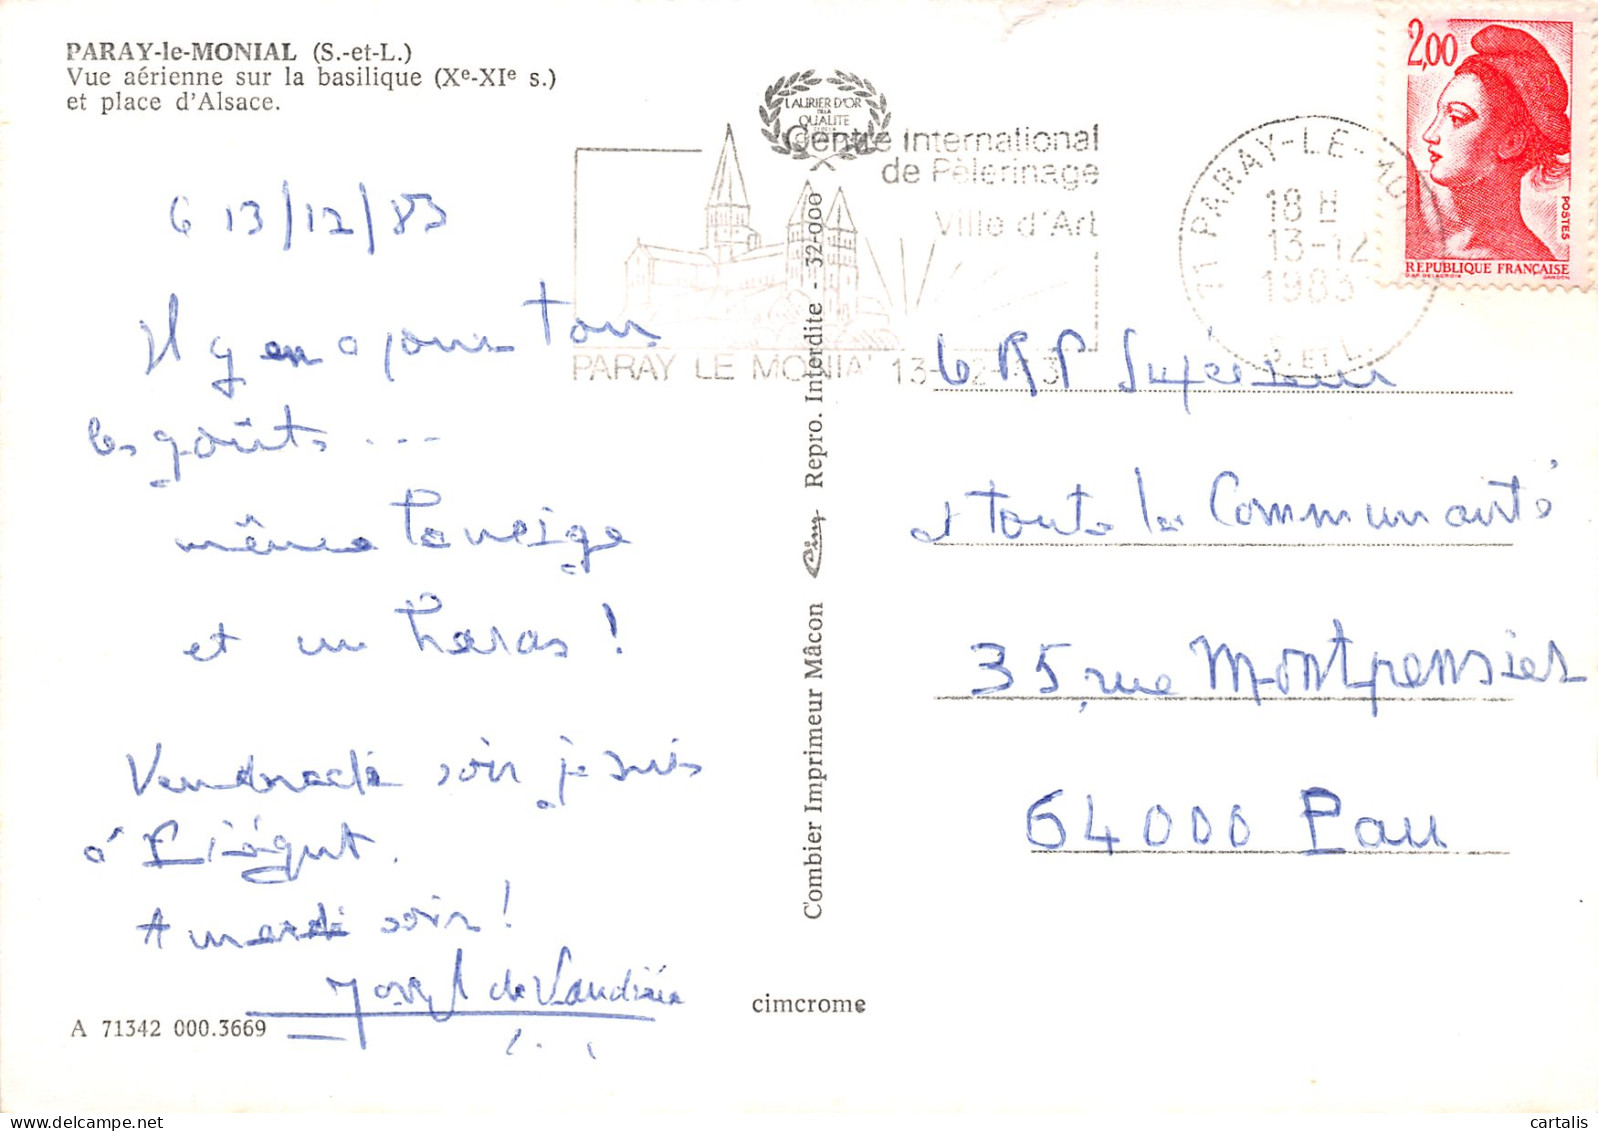 PARAY-le-MONIAL (S.-et-L.)
Vue aérienne sur la basilique (Xe-XIe s.)
et place d'Alsace.
LAURIER D'OR
DE LA
QUALITE
Centre International
de Pèlerinage
Ville d'Art
PARAY LE MONIAL 13-12-83
71 PARAY-LE-MO
18 H
13-12
1983
S. ET L.
2,00
POSTES
REPUBLIQUE FRANÇAISE
le 13/12/83
Il y en a pour tous
les goûts ...
même la neige
et un haras !
Vendredi soir je suis
à
A mardi soir !
de
le RP Supérieur
et toute la Communauté
35, rue Montpensier
64000 Pau
Combier Imprimeur Mâcon Cim Repro. Interdite - 32-000
cimcrome
A 71342 000.3669
cartalis